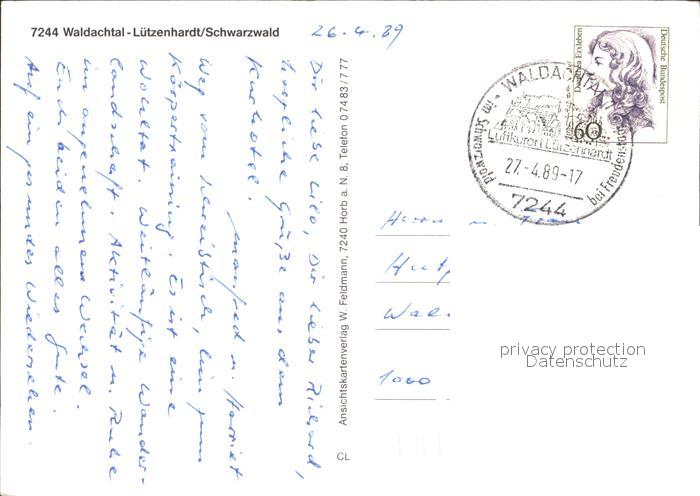 7244 Waldachtal - Lützenhardt/Schwarzwald
26.4.89
Dir liebe Lilo, Dir lieber Richard,
herzliche Grüße aus dem
Kurhotel.
Manfred u. Harriet
Weg vom Schreibtisch, hin zum
Körpertraining. Es ist eine
Wohltat. Weitläufige Wander-
landschaft. Aktivität u. Ruhe
im angenehmen Wechsel.
Euch beiden alles Gute.
Auf ein gesundes Wiedersehen.
Ansichtskartenverlag W. Feldmann, 7240 Horb a. N. 8, Telefon 0 74 83 / 7 77
CL
Deutsche Bundespost
60
WALDACHTAL
Luftkurort Lützenhardt
27.-4.89-17
7244
im Schwarzwald
bei Freudenstadt
Herrn u. Frau
1000
privacy protection
Datenschutz